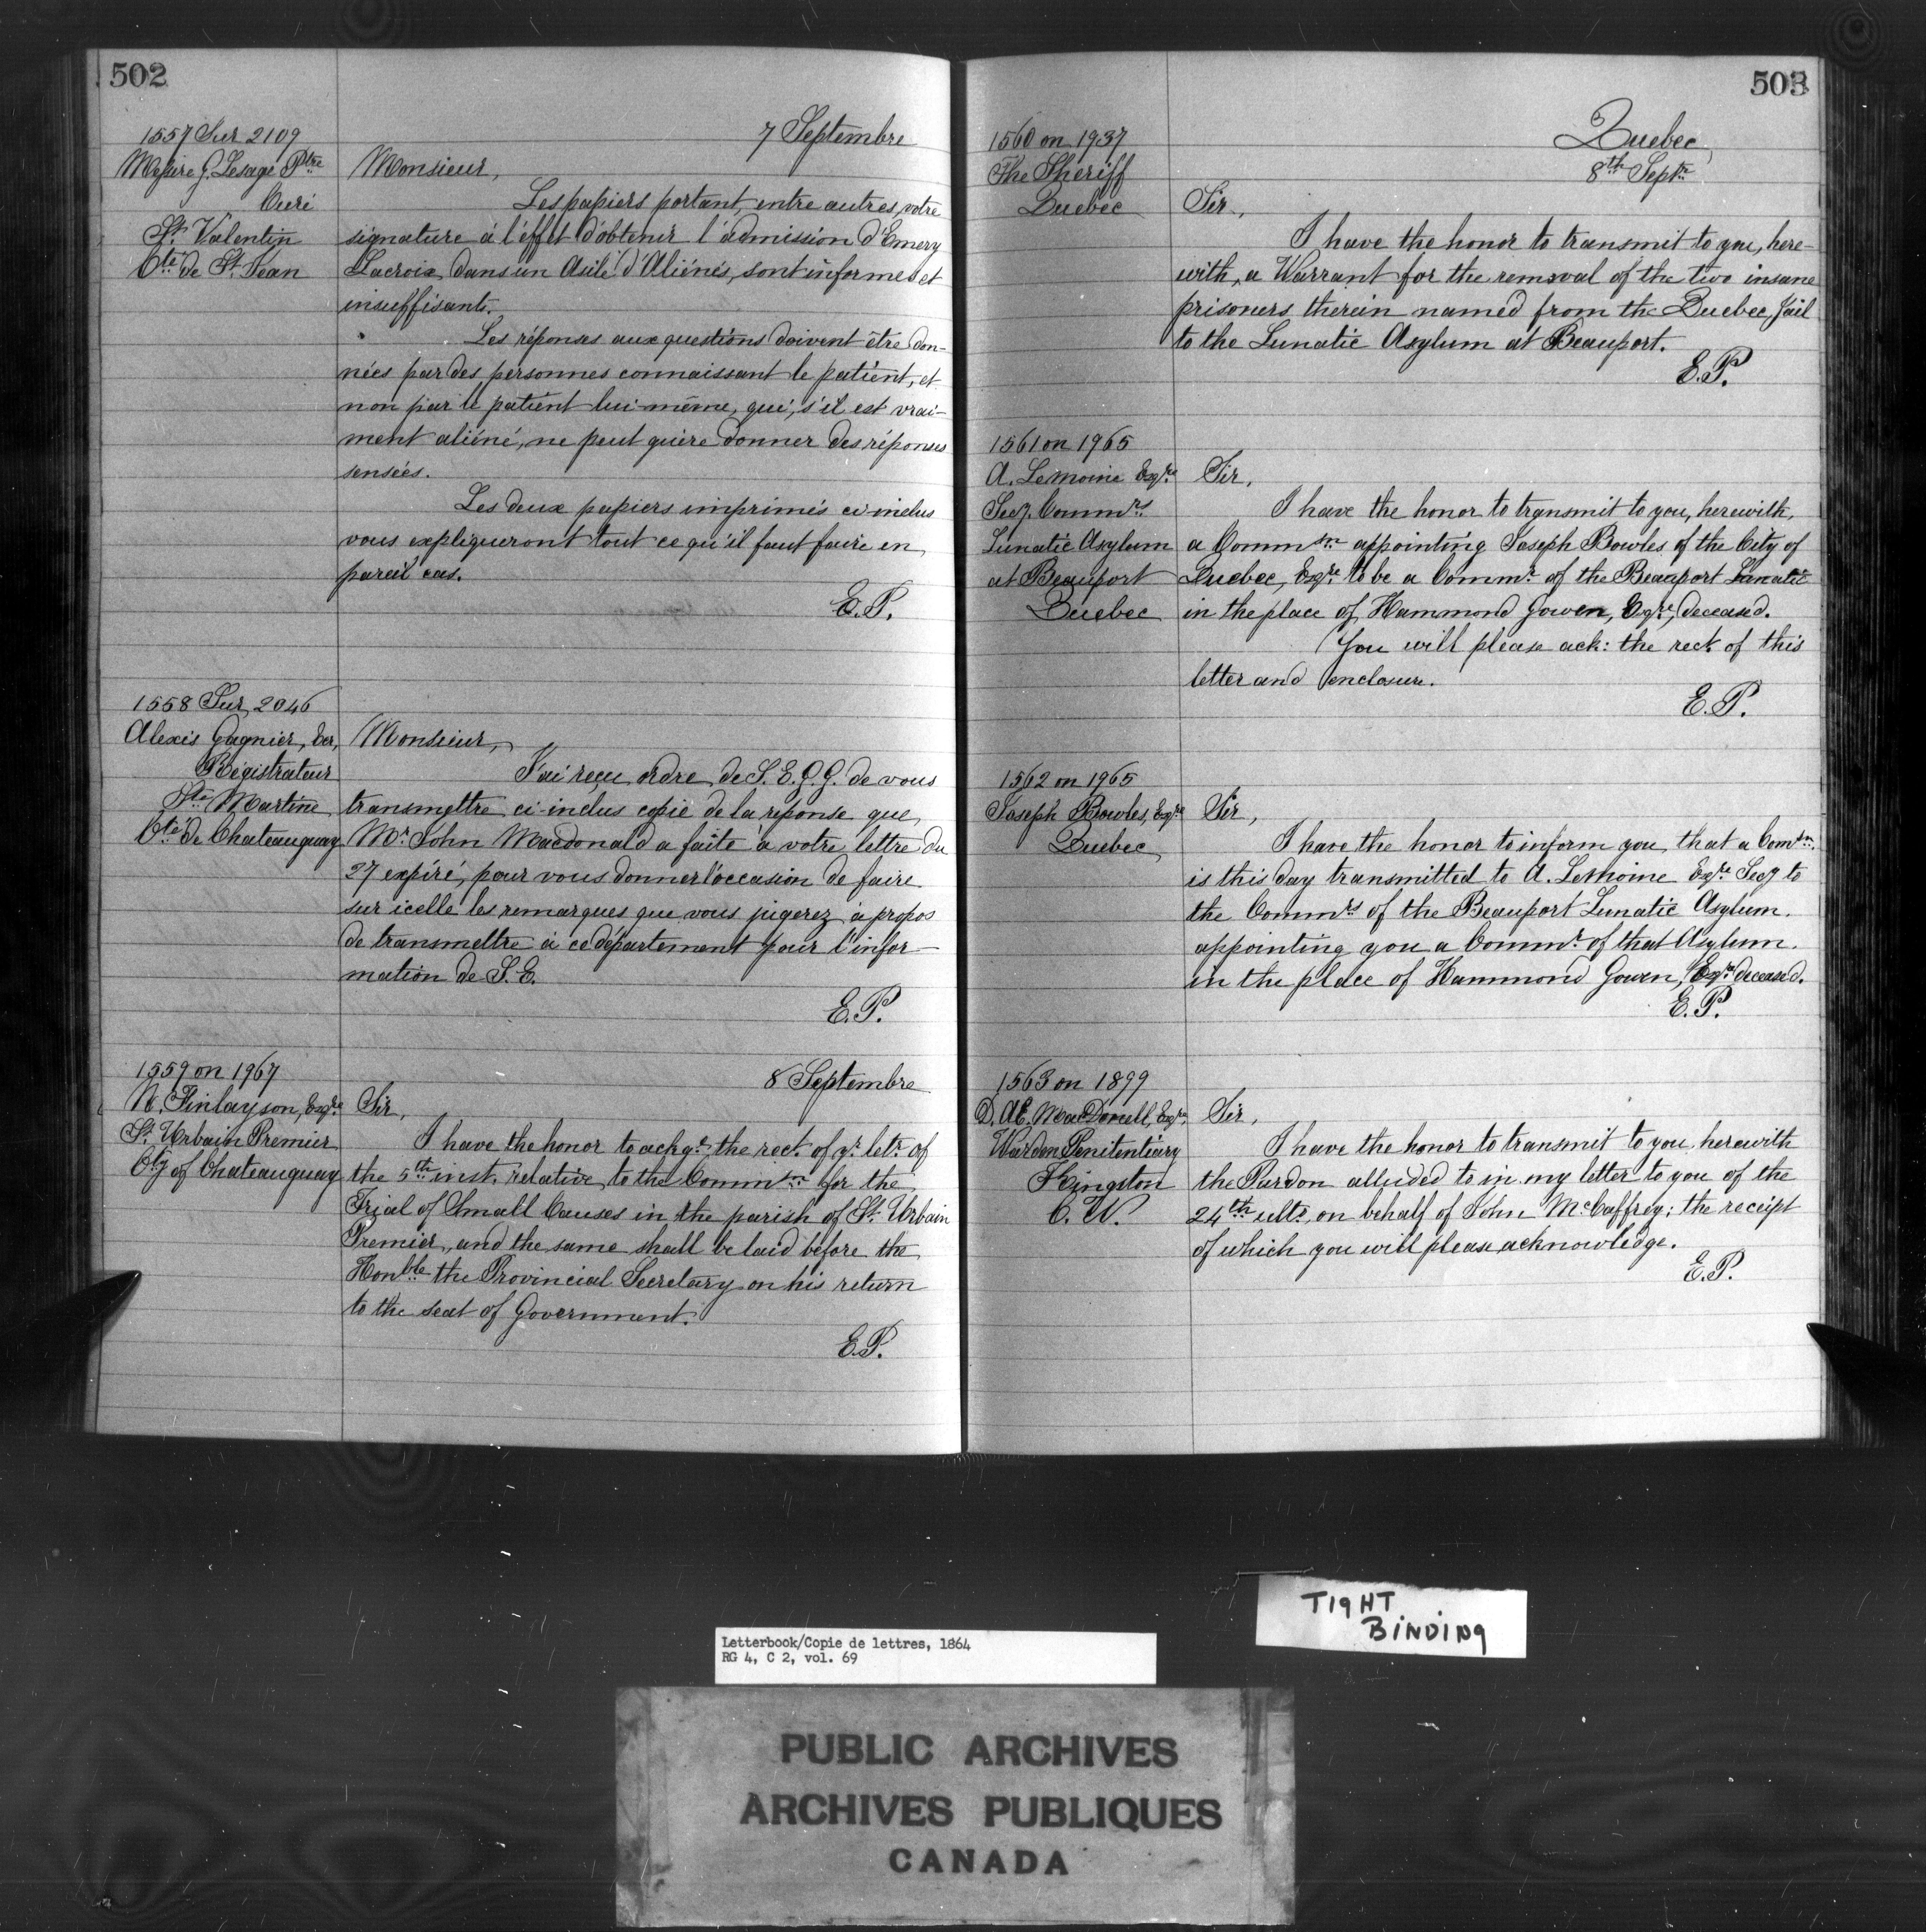 502
7 Septembre
1557 Sur 2109
Messire G. Lesage Ptre
Curé
St. Valentin
Cté de St. Jean
Monsieur,
Les papiers portant, entre autres, votre
signature à l'effet d'obtenir l'admission d'Emery
Lacroix, dans un Asile d'Aliénés, sont informes et
insuffisants.
Les réponses aux questions doivent être don-
nées par des personnes connaissant le patient, et
non par le patient lui-même, qui, s'il est vrai-
ment aliéné, ne peut guère donner des réponses
sensées.
Les deux papiers imprimés ci-inclus
vous expliqueront tout ce qu'il faut faire en
pareil cas.
E.P.
1558 Sur 2046
Alexis Gagnier, Ecr,
Régistrateur
Ste Martine
Cté de Chateauguay
Monsieur,
J'ai reçu ordre de S.E.G.G. de vous
transmettre ci-inclus copie de la réponse que
Mr John Macdonald a faite à votre lettre du
27 expiré, pour vous donner l'occasion de faire
sur icelle les remarques que vous jugerez à propos
de transmettre à ce département pour l'infor-
mation de S.E.
E.P.
8 Septembre
1559 on 1967
N. Finlayson, Esqre
St. Urbain Premier
Cty of Chateauguay
Sir,
I have the honor to ackge the rect. of yr. letr. of
the 5th inst. relative to the Commsn for the
Trial of Small Causes in the parish of St. Urbain
Premier, and the same shall be laid before the
Honble the Provincial Secretary on his return
to the seat of Government.
E.P.
503
Quebec,
8th Septr
1560 on 1937
The Sheriff
Quebec
Sir,
I have the honor to transmit to you, here-
with, a Warrant for the removal of the two insane
prisoners therein named from the Quebec Jail
to the Lunatic Asylum at Beauport.
E.P.
1561 on 1965
A. Lemoine Esqre
Secy. Commrs
Lunatic Asylum
at Beauport
Quebec
Sir,
I have the honor to transmit to you, herewith,
a Commsn appointing Joseph Bowles of the City of
Quebec, Esqre to be a Commr. of the Beauport Lunatic
in the place of Hammond Gowen, Esqre, deceased.
You will please ack: the rect. of this
letter and enclosure.
E.P.
1562 on 1965
Joseph Bowles, Esqre
Quebec
Sir,
I have the honor to inform you, that a Comsn.
is this day transmitted to A. Lemoine Esqre Secy to
the Commrs of the Beauport Lunatic Asylum.
appointing you a Commr. of that Asylum.
in the place of Hammond Gowen, Esqre deceased.
E.P.
1563 on 1899
D. AE. MacDonell, Esqre
Warden Penitentiary
Kingston
C.W.
Sir,
I have the honor to transmit to you herewith
the Pardon alluded to in my letter to you of the
24th ulto, on behalf of John McCaffrey; the receipt
of which you will please acknowledge.
E.P.
TIGHT
BINDING
Letterbook/Copie de lettres, 1864
RG 4, C 2, vol. 69
PUBLIC ARCHIVES
ARCHIVES PUBLIQUES
CANADA